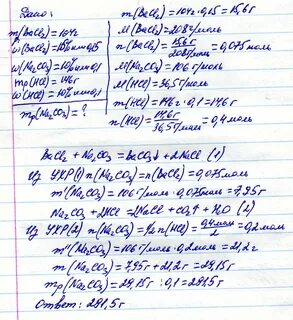 Дано:
m(BaCl₂)=104г
w(BaCl₂)=15% или 0,15
w(Na₂CO₃)=10% или 0,1
mр(HCl)=146г
w(HCl)=10% или 0,1
mр(Na₂CO₃)=?
m(BaCl₂)=104г·0,15=15,6г
M(BaCl₂)=208г/моль
n(BaCl₂)=15,6г/208г/моль=0,075моль
M(Na₂CO₃)=106г/моль
M(HCl)=36,5г/моль
m(HCl)=146г·0,1=14,6г
n(HCl)=14,6г/36,5г/моль=0,4моль
BaCl₂+Na₂CO₃=BaCO₃↓+2NaCl (1)
Из УХР(1) n(Na₂CO₃)=n(BaCl₂)=0,075моль
m'(Na₂CO₃)=106г/моль·0,075моль=7,95г
Na₂CO₃+2HCl=2NaCl+CO₂↑+H₂O (2)
Из УХР(2) n(Na₂CO₃)=½n(HCl)=0,4моль/2=0,2моль
m''(Na₂CO₃)=106г/моль·0,2моль=21,2г
m(Na₂CO₃)=7,95г+21,2г=29,15г
mр(Na₂CO₃)=29,15г:0,1=291,5г
Ответ: 291,5г